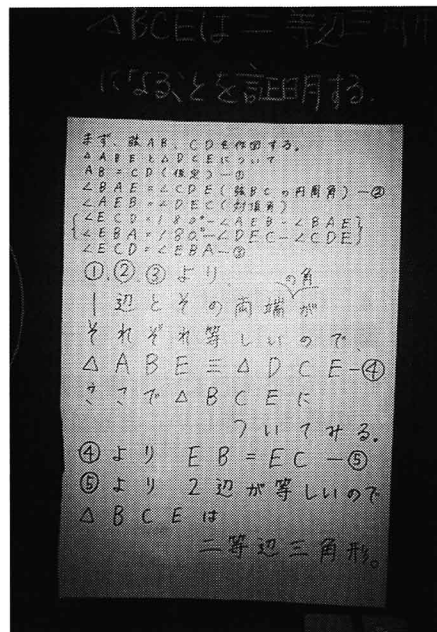 △BCEは二等辺三角形
になることを証明する.
まず、弦AB、CDを作図する。
△ABEと△DCEについて
AB=CD(仮定)―①
∠BAE=∠CDE(弧BCの円周角)―②
∠AEB=∠DEC(対頂角)
∠ECD=180°-∠AEB-∠BAE
∠EBA=180°-∠DEC-∠CDE
∠ECD=∠EBA―③
①.②.③より
の角
1辺とその両端が
それぞれ等しいので
△ABE≡△DCE―④
ここで△BCEに
ついてみる。
④より EB=EC―⑤
⑤より2辺が等しいので
△BCEは
二等辺三角形。